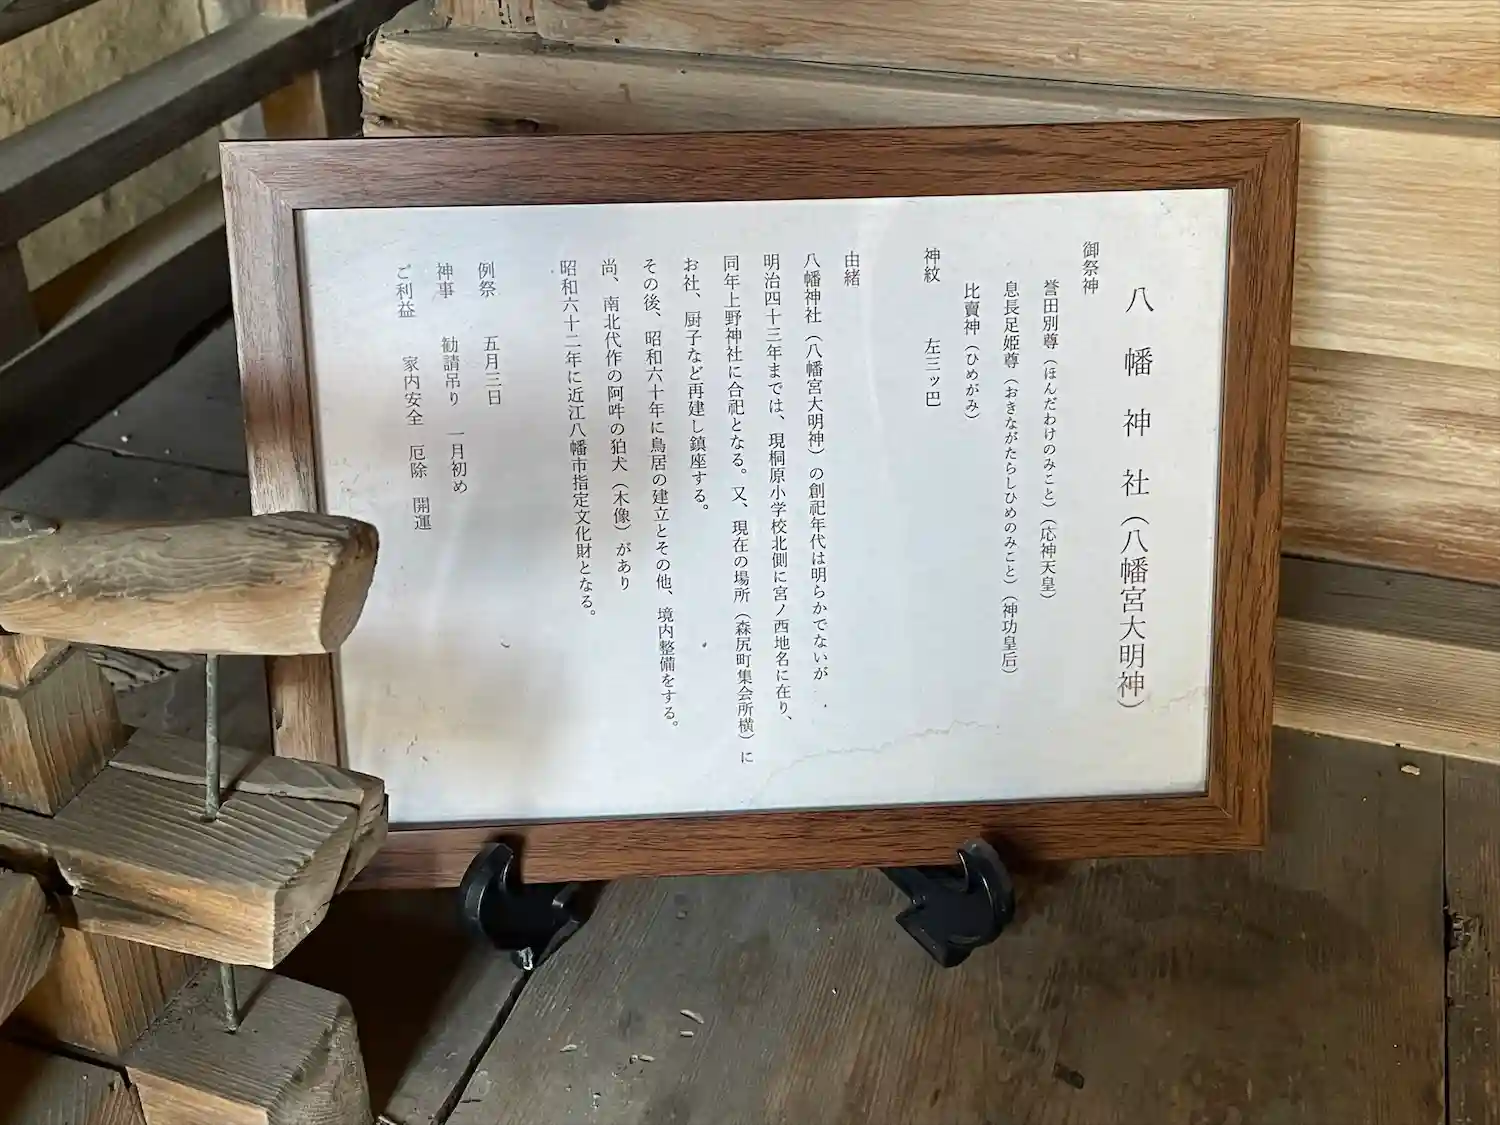 八幡神社（八幡宮大明神）
御祭神
誉田別尊（ほんだわけのみこと）（応神天皇）
息長足姫尊（おきながたらしひめのみこと）（神功皇后）
比賣神（ひめがみ）
神紋　左三ッ巴
由緒
八幡神社（八幡宮大明神）の創祀年代は明らかでないが
明治四十三年までは、現桐原小学校北側に宮ノ西地名に在り、
同年上野神社に合祀となる。又、現在の場所（森尻町集会所横）に
お社、厨子など再建し鎮座する。
その後、昭和六十年に鳥居の建立とその他、境内整備をする。
尚、南北代作の阿吽の狛犬（木像）があり
昭和六十二年に近江八幡市指定文化財となる。
例祭　五月三日
神事　勧請吊り　一月初め
ご利益　家内安全　厄除　開運